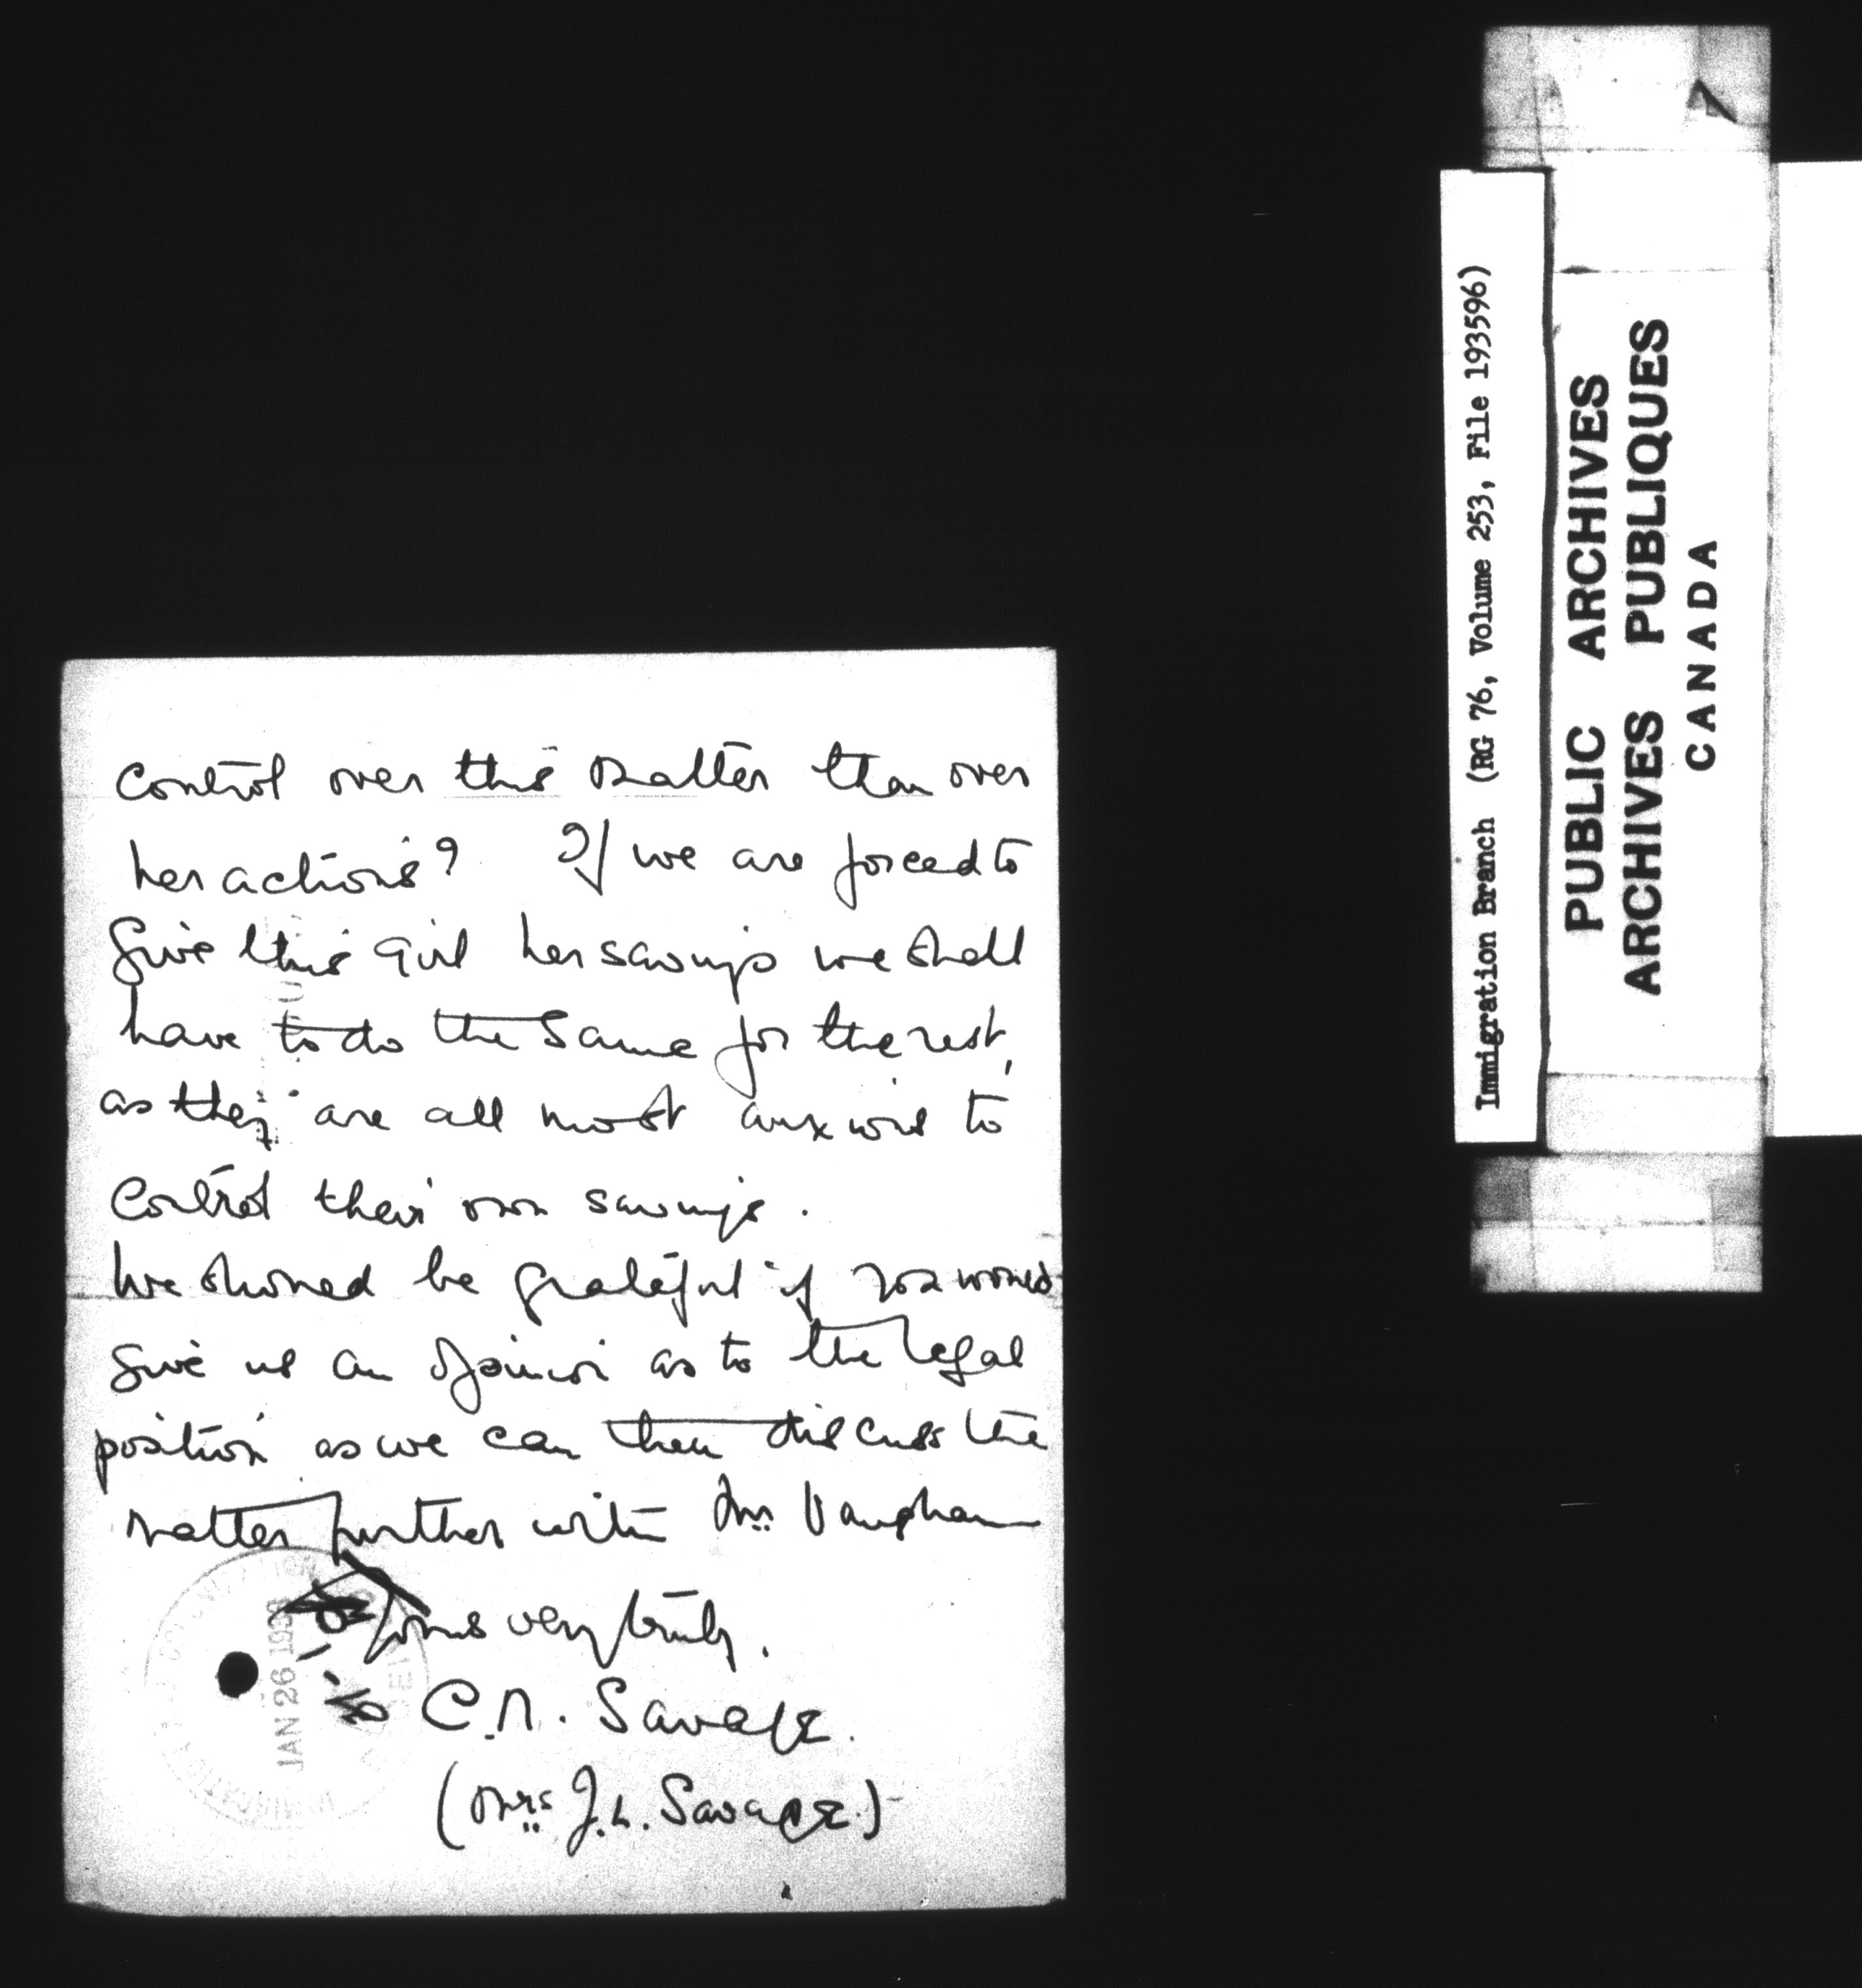 control over this matter than over
her actions? If we are forced to
give this girl her savings we shall
have to do the same for the rest,
as they are all most anxious to
control their own savings.
We should be grateful if you would
give us an opinion as to the legal
position as we can then discuss the
matter further with Mrs Vaughan
Yours very truly.
C.N. Savage.
(Mrs J.L. Savage.)
JAN 26 193
Immigration Branch (RG 76, Volume 253, File 193596)
PUBLIC ARCHIVES
ARCHIVES PUBLIQUES
CANADA